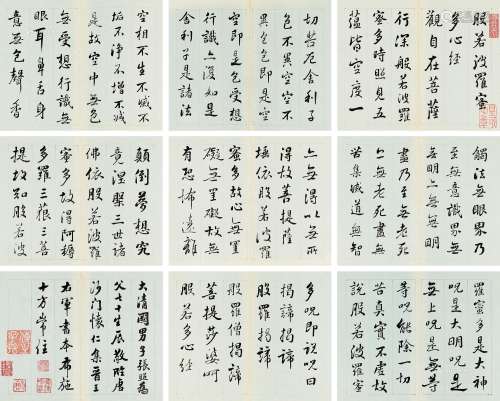 般若波羅蜜
多心經
觀自在菩薩
行深般若波羅
蜜多時照見五
蘊皆空度一
切苦厄舍利子
色不異空空不
異色色即是空
空即是色受想
行識亦復如是
舍利子是諸法
空相不生不滅不
垢不淨不增不減
是故空中無色
無受想行識無
眼耳鼻舌身
意無色聲香
觸法無眼界乃
至無意識界無
無明亦無無明
盡乃至無老死
亦無老死盡無
苦集滅道無智
亦無得以無所
得故菩提薩
埵依般若波羅
蜜多故心無罣
礙無罣礙故無
有恐怖遠離
顛倒夢想究
竟涅槃三世諸
佛依般若波羅
蜜多故得阿耨
多羅三藐三菩
提故知般若波
羅蜜多是大神
咒是大明咒是
無上咒是無等
等咒能除一切
苦真實不虛故
說般若波羅蜜
多咒即說咒曰
揭諦揭諦
般羅揭諦
般羅僧揭諦
菩提莎婆呵
般若多心經
大清國男子張照為
父七十生辰敬臨唐
沙門懷仁集晉王
右軍書本奉施
十方常住